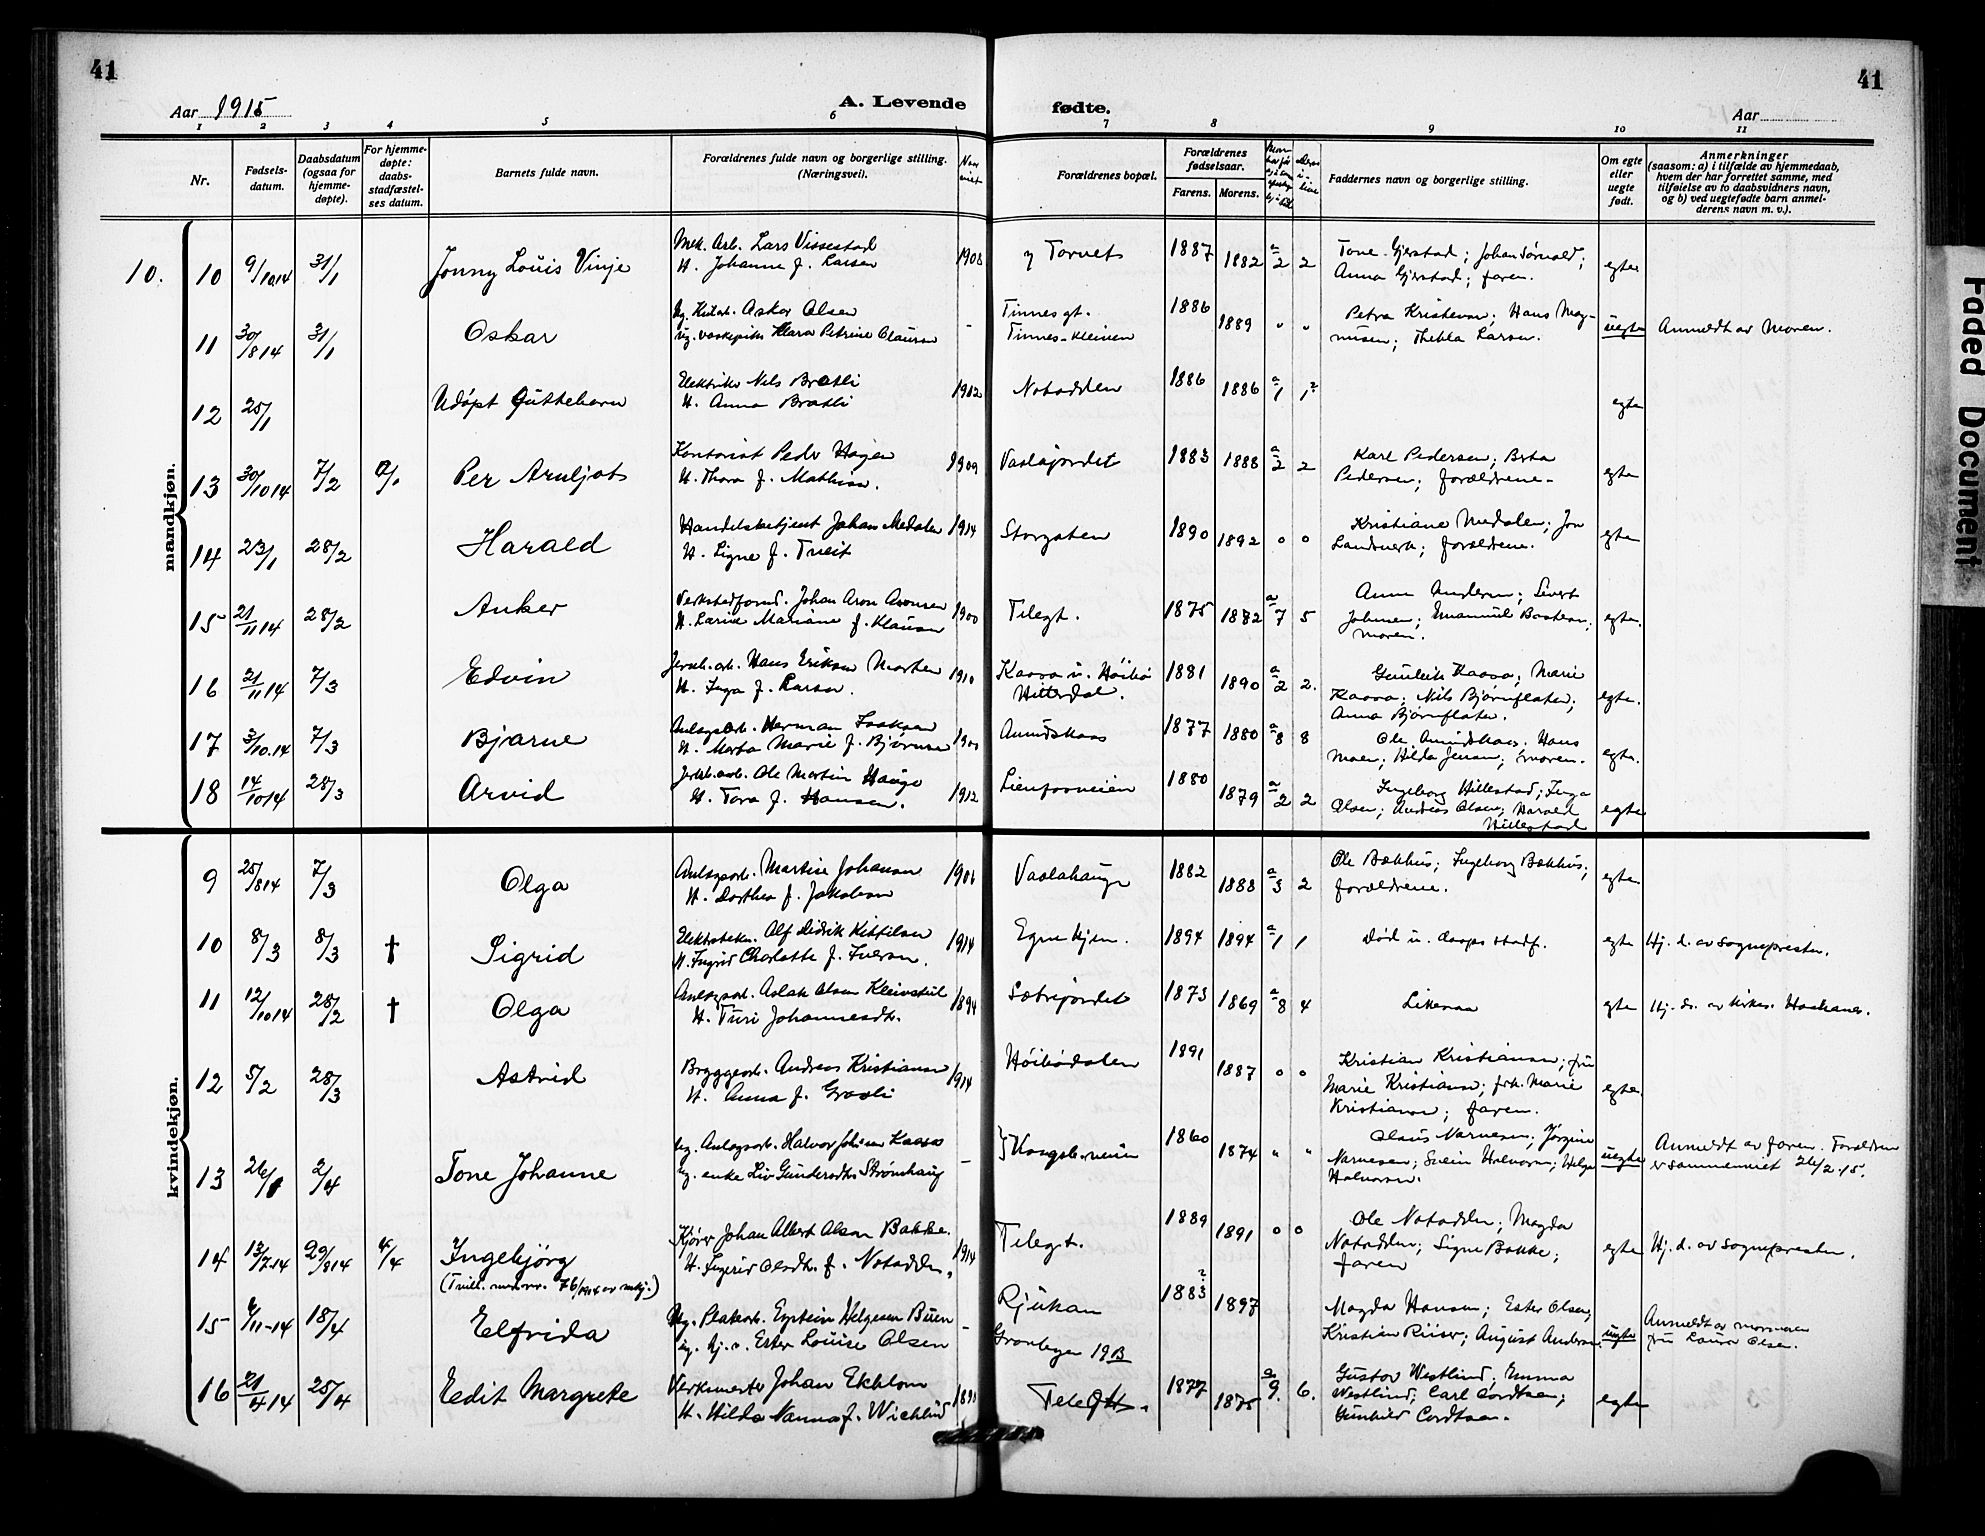 41
41
Aar 1915
A. Levende
fødte.
Aar
1 2 3 4 5 6 7 8 9 10 11
Nr.
Fødsels-
datum.
Daabsdatum
(ogsaa for
hjemme-
døpte).
For hjemme-
døpte:
daabs-
stadfæstel-
ses datum.
Barnets fulde navn.
Forældrenes fulde navn og borgerlige stilling.
(Næringsvei).
Forældrenes bopæl.
Forældrenes
fødselsaar.
Farens. Morens.
Faddernes navn og borgerlige stilling.
Om egte
eller
uegte
født.
Anmerkninger
(saasom: a) i tilfælde av hjemmedaab,
hvem der har forrettet samme, med
tilføielse av to daabsvidners navn,
og b) ved uegtefødte barn anmel-
derens navn m. v.).
mandkjøn.
10. 10 9/10.14 31/1 Jonny Louis Vinje
Mek. Arb. Lars Vissestad
H. Johanne f. Larsen
1908 Torvet 1887 1882 2 2
Tone Gjerstad; Johan
Anna Gjerstad; faren.
egte
11 30/8 14 31/1 Oskar
Oskar Olsen
Klara Petrine Clausen
Tinnesgt.
Tinnes-Kleiven
1886 1889
Petra Kristensen; Hans Mag-
nusen; Thekla Larsen.
uegte Anmeldt av Moren.
12 25/1 Udøpt Guttebarn
Elektriker Nils Bratli
H. Anna Bratli
1912 Notodden 1886 1886 1 1
egte
13 30/10 14 7/2 Per Arnljot
Kontorist Peder Hagen
H. Thora f. Mathisen.
1909 1883 1888 2 2
Karl Pedersen; Berta
Pedersen; forældrene.
egte
14 23/1 28/2 Harald
Handelsbetjent Johan Medalen
H. Signe f. Tveit
1914 Storgaten 1890 1892 0 0
Kristiane Medalen; Jon
Landsverk; forældrene.
egte
15 21/11 14 28/2 Anker
Johan Aron Aronsen
Mariane f. Klausen
1900 Telegt. 1875 1882 7 5
Anna Andersen; Sivert
Johnsen; Emanuel
moren.
egte.
16 21/11 14 7/3 Edvin
Jernb.arb. Hans Eriksen Morten
H. Inga f. Larsen.
1910 Kaasa u. Høibø
Hitterdal.
1881 1890 2 2.
Gunleik Kaasa; Marie
Kaasa; Nils Bjørnflaten;
Anna Bjørnflaten.
egte.
17 3/10.14 7/3 Bjarne
Anlægsarb. Herman Isaksen
H. Marta Marie f. Bjørnsen
Amundskaas 1877 1880 8 8
Ole Amundskaas; Hans
Moen; Hilda Jensen; moren.
egte.
18 14/10 14 28/3 Arvid
Jernb.arb. Ole Martin Hauge
H. Tora f. Hansen.
1912 Lienfosveien 1880 1879 2 2
Ingeborg Hillestad; Inga
Olsen; Andreas Olsen; Harald
Hillestad
egte
kvindekjøn.
9 25/8 14 7/3 Olga
Anlægsarb. Martin Johansen
H. Dorthea f. Jakobsen
1906 Vaalahaugen 1882 1888 3 2
Ole Bækhus; Ingeborg Bækhus;
forældrene.
egte
10 8/3 8/3 † Sigrid
Elektrotekn. Alf Didrik Kittilsen
H. Ingrid Charlotte f. Iversen.
1914 Egne hjem. 1894 1894 1 1
Død u. daaps stadf.
egte Hj. d. av sognepresten.
11 12/10 14 28/2 † Olga
Anlægsarb. Aslak Olsen Kleivstul
H. Turi Johannesdtr.
1894 Sætrejordet 1873 1869 8 4
Likesaa
egte Hj. d. av kirkes.
12 5/2 28/3 Astrid
Bryggearb. Andreas Kristiansen
H. Anna f. Graali
1914 Høibødalen 1891 1887 0 0
Kristian Kristiansen; fru
Marie Kristiansen; frk. Marie
Kristiansen; faren.
egte.
13 2/4 Tone Johanne
ug. Anlægsarb. Halvor Johnsen Kaasa
ug. enke Liv Gundersdtr Strømhaug
Kongsb.veien 1860 1874
Olaus Narvesen; Jørgine
Narvesen; Svein Halvorsen; Helge
Halvorsen.
uegte
Anmeldt av faren. Forældrene
er sammenviet 26/2.15.
14 13/7 14 29/8 14 5/4 Ingebjørg
(Tvill. med nr. 76/1914 av mkj.)
Kjører Johan Albert Olsen Bakke.
H. Ingerid Olsdtr. f. Notodden
1914 Telegt. 1889 1891 0 0
Ole Notodden; Magda
Notodden; Signe Bakke;
faren
egte Hj. d. av Sognepresten.
15 18/4 Elfrida
Ug. Platearb. Eystein Helgesen Buen
ug. Ester Louise Olsen
Rjukan
Grønbyen 19B
1883 1897
Magda Hansen; Ester Olsen;
Kristian Riiser; August Andersen
uegte
Anmeldt av mormoren
fru Laura Olsen.
16 21/4 14 25/4 Edit Margrete
Verksmester Johan Ekblom
H. Hilda Nanna f. Wicklund
Telegt. 1877 1875 9. 6.
Gustav Westlind; Emma
Westlind; Carl Cordtsen;
Gunhild Cordtsen.
egte
Faded Document